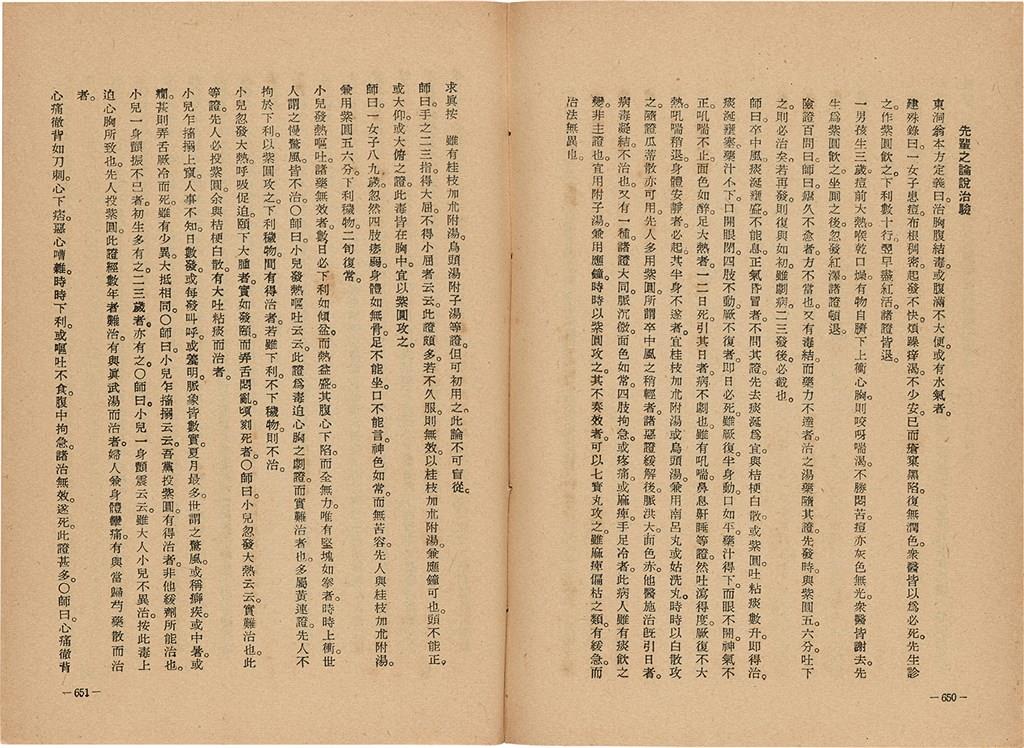 先輩之論說治驗
東洞翁本方定義曰治胸腹結毒或腹滿不大便或有水氣者。
建殊錄曰一女子患痘布根稠密起發不快煩躁痒渴不少安已而瘡窠黑陷復無潤色衆醫皆以爲必死先生診
之作紫圓飲之下利數十行翌早盡紅活諸證皆退。
一男孩生三歲痘前大熱喉乾口燥有物自臍下上衝心胸則咬呀喘渴不勝悶苦痘亦灰色無光衆醫皆謝去先
生爲紫圓飲之坐厠之後忽發紅澤諸證頓退。
險證百問曰師曰癲久不愈者方不當也又有毒結而藥力不達者治之湯藥隨其證先發時與紫圓五六分吐下
之則必治矣若再發則復與如初雖劇病二三發後必截也。
師曰卒中風痰涎壅盛不能息正氣皆冒者不問其證先去痰涎爲宜與桔梗白散或紫圓吐粘痰數升即得治。
痰涎壅塞藥汁不下口開眼閉四肢不動厥不復者即日必死雖厥復半身動口如平藥汁得下而眼不開神氣不
正吼喘不止面色如醉足大熱者一二日死引其日者病不劇也雖有吼喘鼻息鼾睡等證然吐瀉得度厥復不大
熱吼喘稍退身體安靜者必起其半身不遂者宜桂枝加朮附湯或烏頭湯兼用南呂丸或姑洗丸時時以白散攻
之隨證瓜蒂散亦可用先人多用紫圓所謂卒中風之稍輕者諸惡證緩解後脈洪大面色赤他醫施治旣引日者。
病毒凝結不治也又有一種諸證大同脈沉微面色如常四肢拘急或疼痛或麻痺手足冷者此病人雖有痰飲之
變非主證也宜用附子湯兼用應鐘時時以紫圓攻之其不奏效者可以七寶丸攻之雖麻痺偏枯之類有緩急而
治法無異也。
—650—
求眞按　雖有桂枝加朮附湯烏頭湯附子湯等證但可初用之此論不可盲從。
師曰手之二三指得大屈不得小屈者云云此證頗多若不久服則無效以桂枝加朮附湯兼應鐘可也頭不能正。
或大仰或大俯之證此毒皆在胸中宜以紫圓攻之。
師曰一女子八九歲忽然四肢痿弱身體如無骨足不能坐口不能言神色如常而無苦容先人與桂枝加朮附湯。
兼用紫圓五六分下利穢物二旬復常。
小兒發熱嘔吐諸藥無效者數日必下利如傾盆而熱益盛其腹心下陷而全無力唯有堅塊如拳者時時上衝世
人謂之慢驚風皆不治〇師曰小兒發熱嘔吐云云此證爲毒迫心胸之劇證而實難治者也多屬黃連證先人不
拘於下利以紫圓攻之下利穢物間有得治者若雖下利不下穢物則不治。
小兒忽發大熱呼吸促迫頤下大腫者實如發頤而弄舌悶亂頃刻死者〇師曰。小兒忽發大熱云云實難治也此
等證先人必投紫圓余與桔梗白散有大吐粘痰而治者。
小兒乍搐搦上竄人事不知日數發或每發叫呼或䀮明脈象皆數實夏月最多世謂之驚風或稱獅疾或中暑或
癇甚則弄舌厥冷而死雖有少異大抵相同〇師曰小兒乍搐搦云云吾黨投紫圓有得治者非他緩劑所能治也。
小兒一身顫振不已者初生多有之二三歲者亦有之〇師曰小兒一身顫震云云雖大人小兒不異治按此毒上
迫心胸所致也先人投紫圓此證經數年者難治有與眞武湯而治者婦人兼身體攣痛有與當歸芍藥散而治
者。
心痛徹背如刀刺心下痞惡心嘈雜時時下利或嘔吐不食腹中拘急諸治無效遂死此證甚多〇師曰心痛徹背
—651—